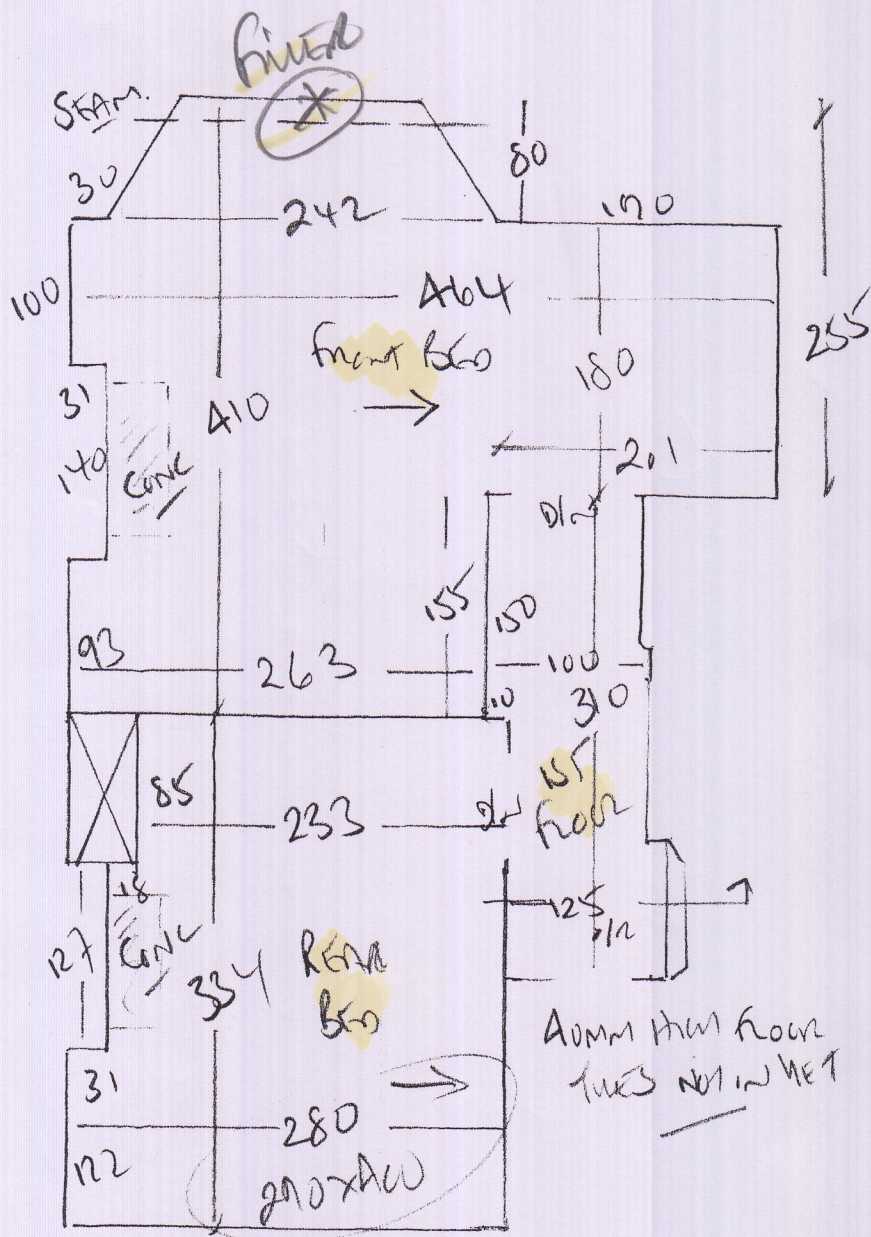 FILLER
*
SEAM.
30
80
242
170
100
464
255
FRONT BED
180
31
410
140
CONC
201
D/W
155
150
93
263
100
10
310
85
1ST
FLOOR
233
D/W
18
CONC
125
D/W
127
334
REAR
BED
40MM HIGH FLOOR
TILES NOT IN YET
31
280
122